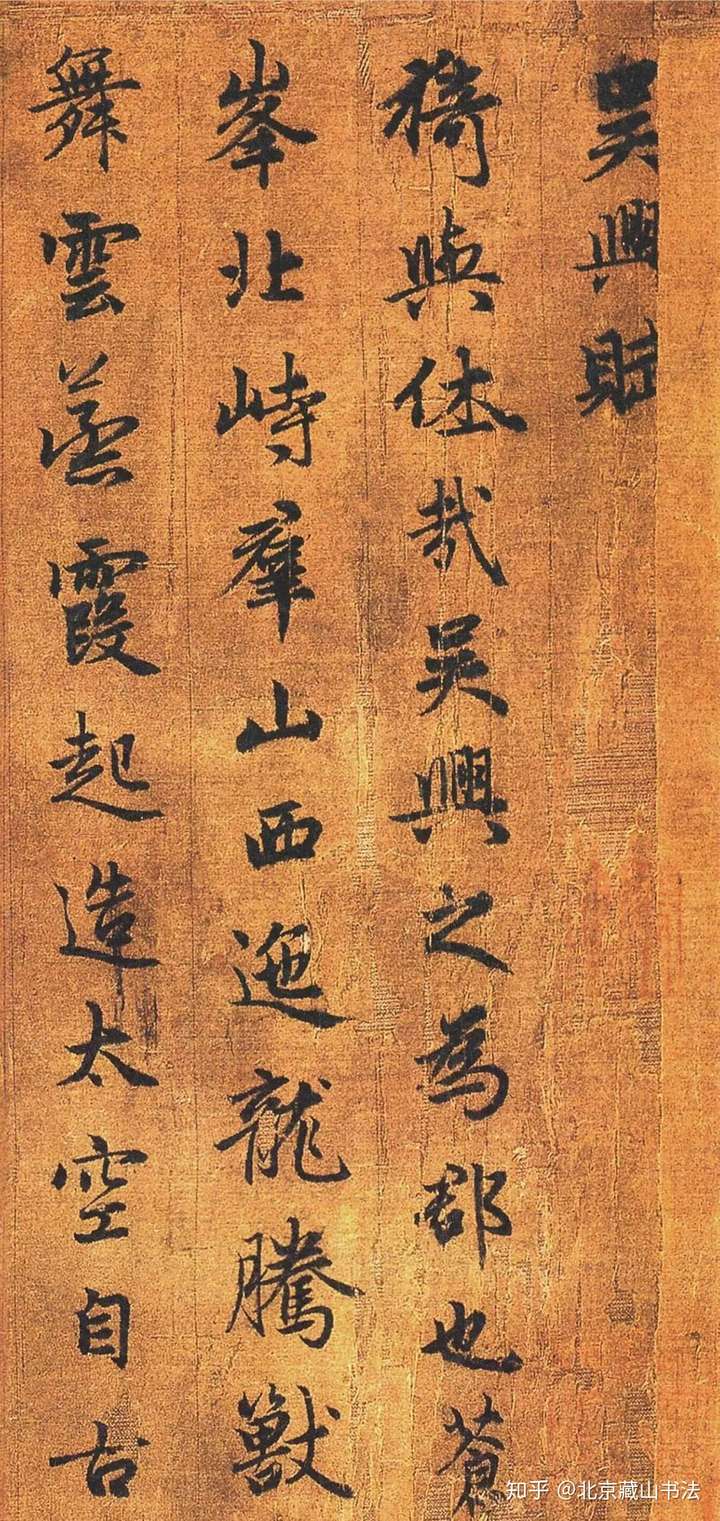 吳興賦
猗與休哉吳興之為郡也蒼
峯北峙羣山西迤龍騰獸
舞雲蒸霞起造太空自古
知乎 @北京藏山书法